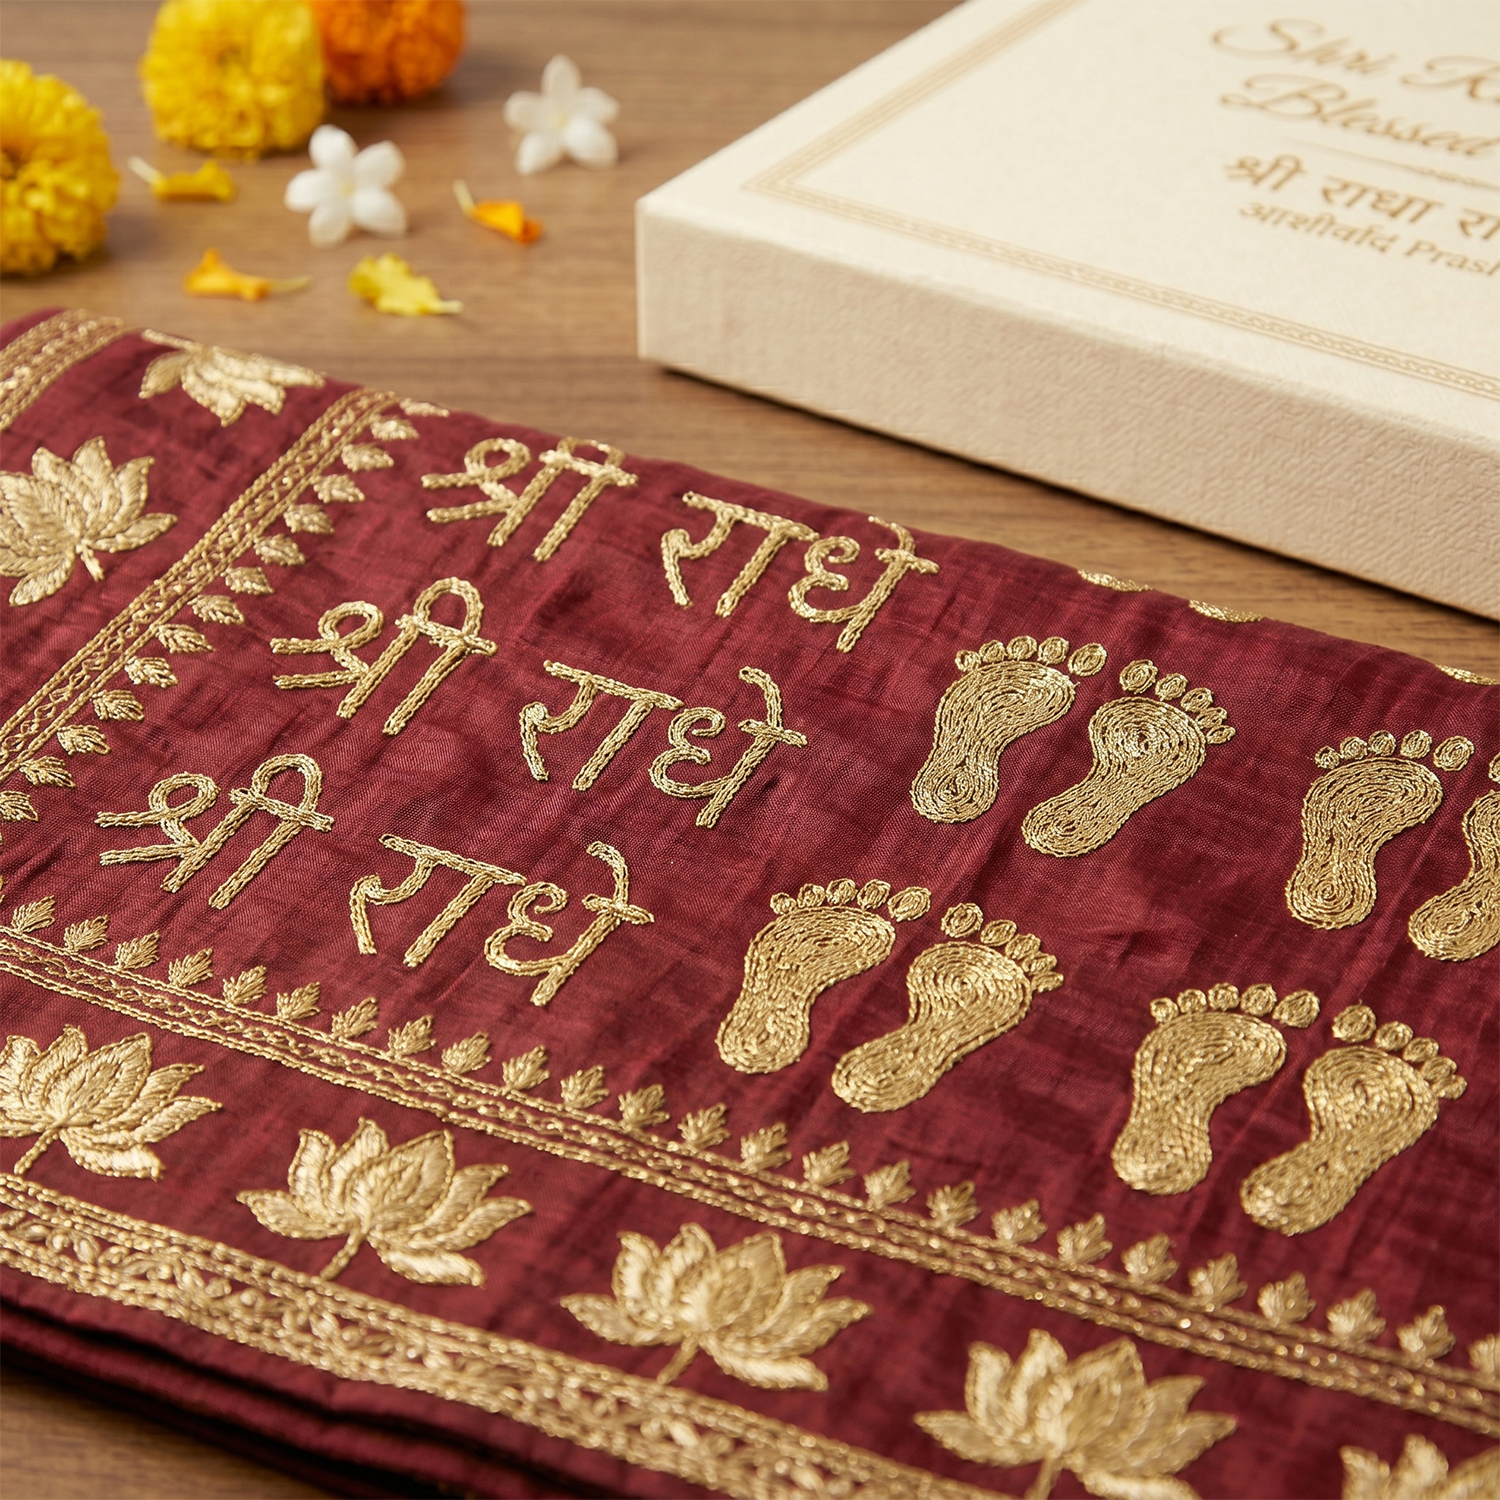 Shri
Blessed
श्री राधा
आशीर्वाद
श्री राधे
श्री राधे
श्री राधे